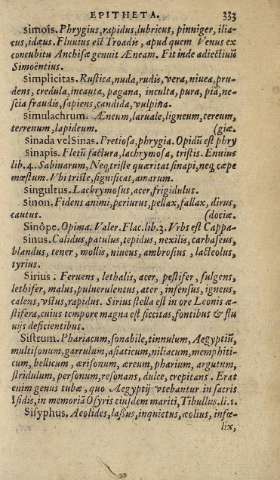 EPITHETA. 333
simois. Phrygius, rapidus, lubricus, pinniger, ilia-
cus, idæus. Fluuius est Troadis, apud quem Venus ex
concubitu Anchisæ genuit Æneam. Fit inde adiectiuū
Simoëntius.
Simplicitas. Rustica, nuda, rudis, vera, niuea, pru-
dens, credula, incauta, pagana, inculta, pura, pia, ne-
scia fraudis, sapiens, candida, vulpina.
Simulachrum. Æneum, laruale, ligneum, cereum,
terrenum, lapideum. (giæ.
Sinada vel Sinas. Pretiosa, phrygia. Opidū est phry
Sinapis. Fletū factura, lachrymosa, tristis. Ennius
lib. 4. Sabinarum, Neq; triste quæritat sinapi, neq; cæpe
mæstum. Vbi triste, significat, amarum.
Singultus. Lachrymosus, acer, frigidulus.
Sinon. Fidens animi, periurus, pellax, fallax, dirus,
cautus. (dociæ.
Sinope. Opima. Valer. Flac. lib. 3. Vrbs est Cappa-
Sinus. Calidus, patulus, tepidus, nexilis, carbaseus,
blandus, tener, mollis, niueus, ambrosius, lacteolus,
tyrius.
Sirius. Feruens, lethalis, acer, pestifer, fulgens,
lethifer, malus, puluerulentus, ater, infensus, igneus,
calens, vstus, rapidus. Sirius stella est in ore Leonis æ-
stifera, cuius tempore magna est siccitas, fontibus & flu
uijs deficientibus.
Sistrum. Phariacum, sonabile, tinnulum, Aegyptiū,
multisonum, garrulum, asiaticum, niliacum, memphiti-
cum, bellicum, ærisonum, æreum, pharium, argutum,
stridulum, persōnum, resonans, dulce, crepitans. Erat
enim genus tubæ, quo Aegyptij vtebantur in sacris
Isidis, in memoriā Osyris eiusdem mariti, Tibullus. li. 1.
Sisyphus. Aeolides, lassus, inquietus, æolius, infæ-
lix,